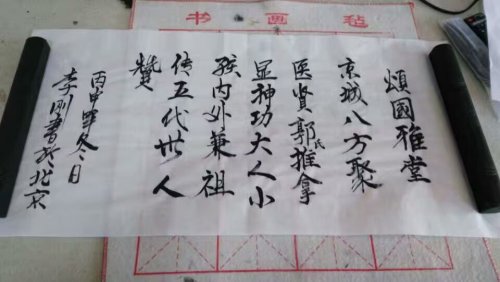 书画毡
頌國雅堂
京城八方聚
医贤郭氏推拿
显神功大人小
孩内外兼祖
传五代世人
赞
丙申年冬日
李刚书于北京